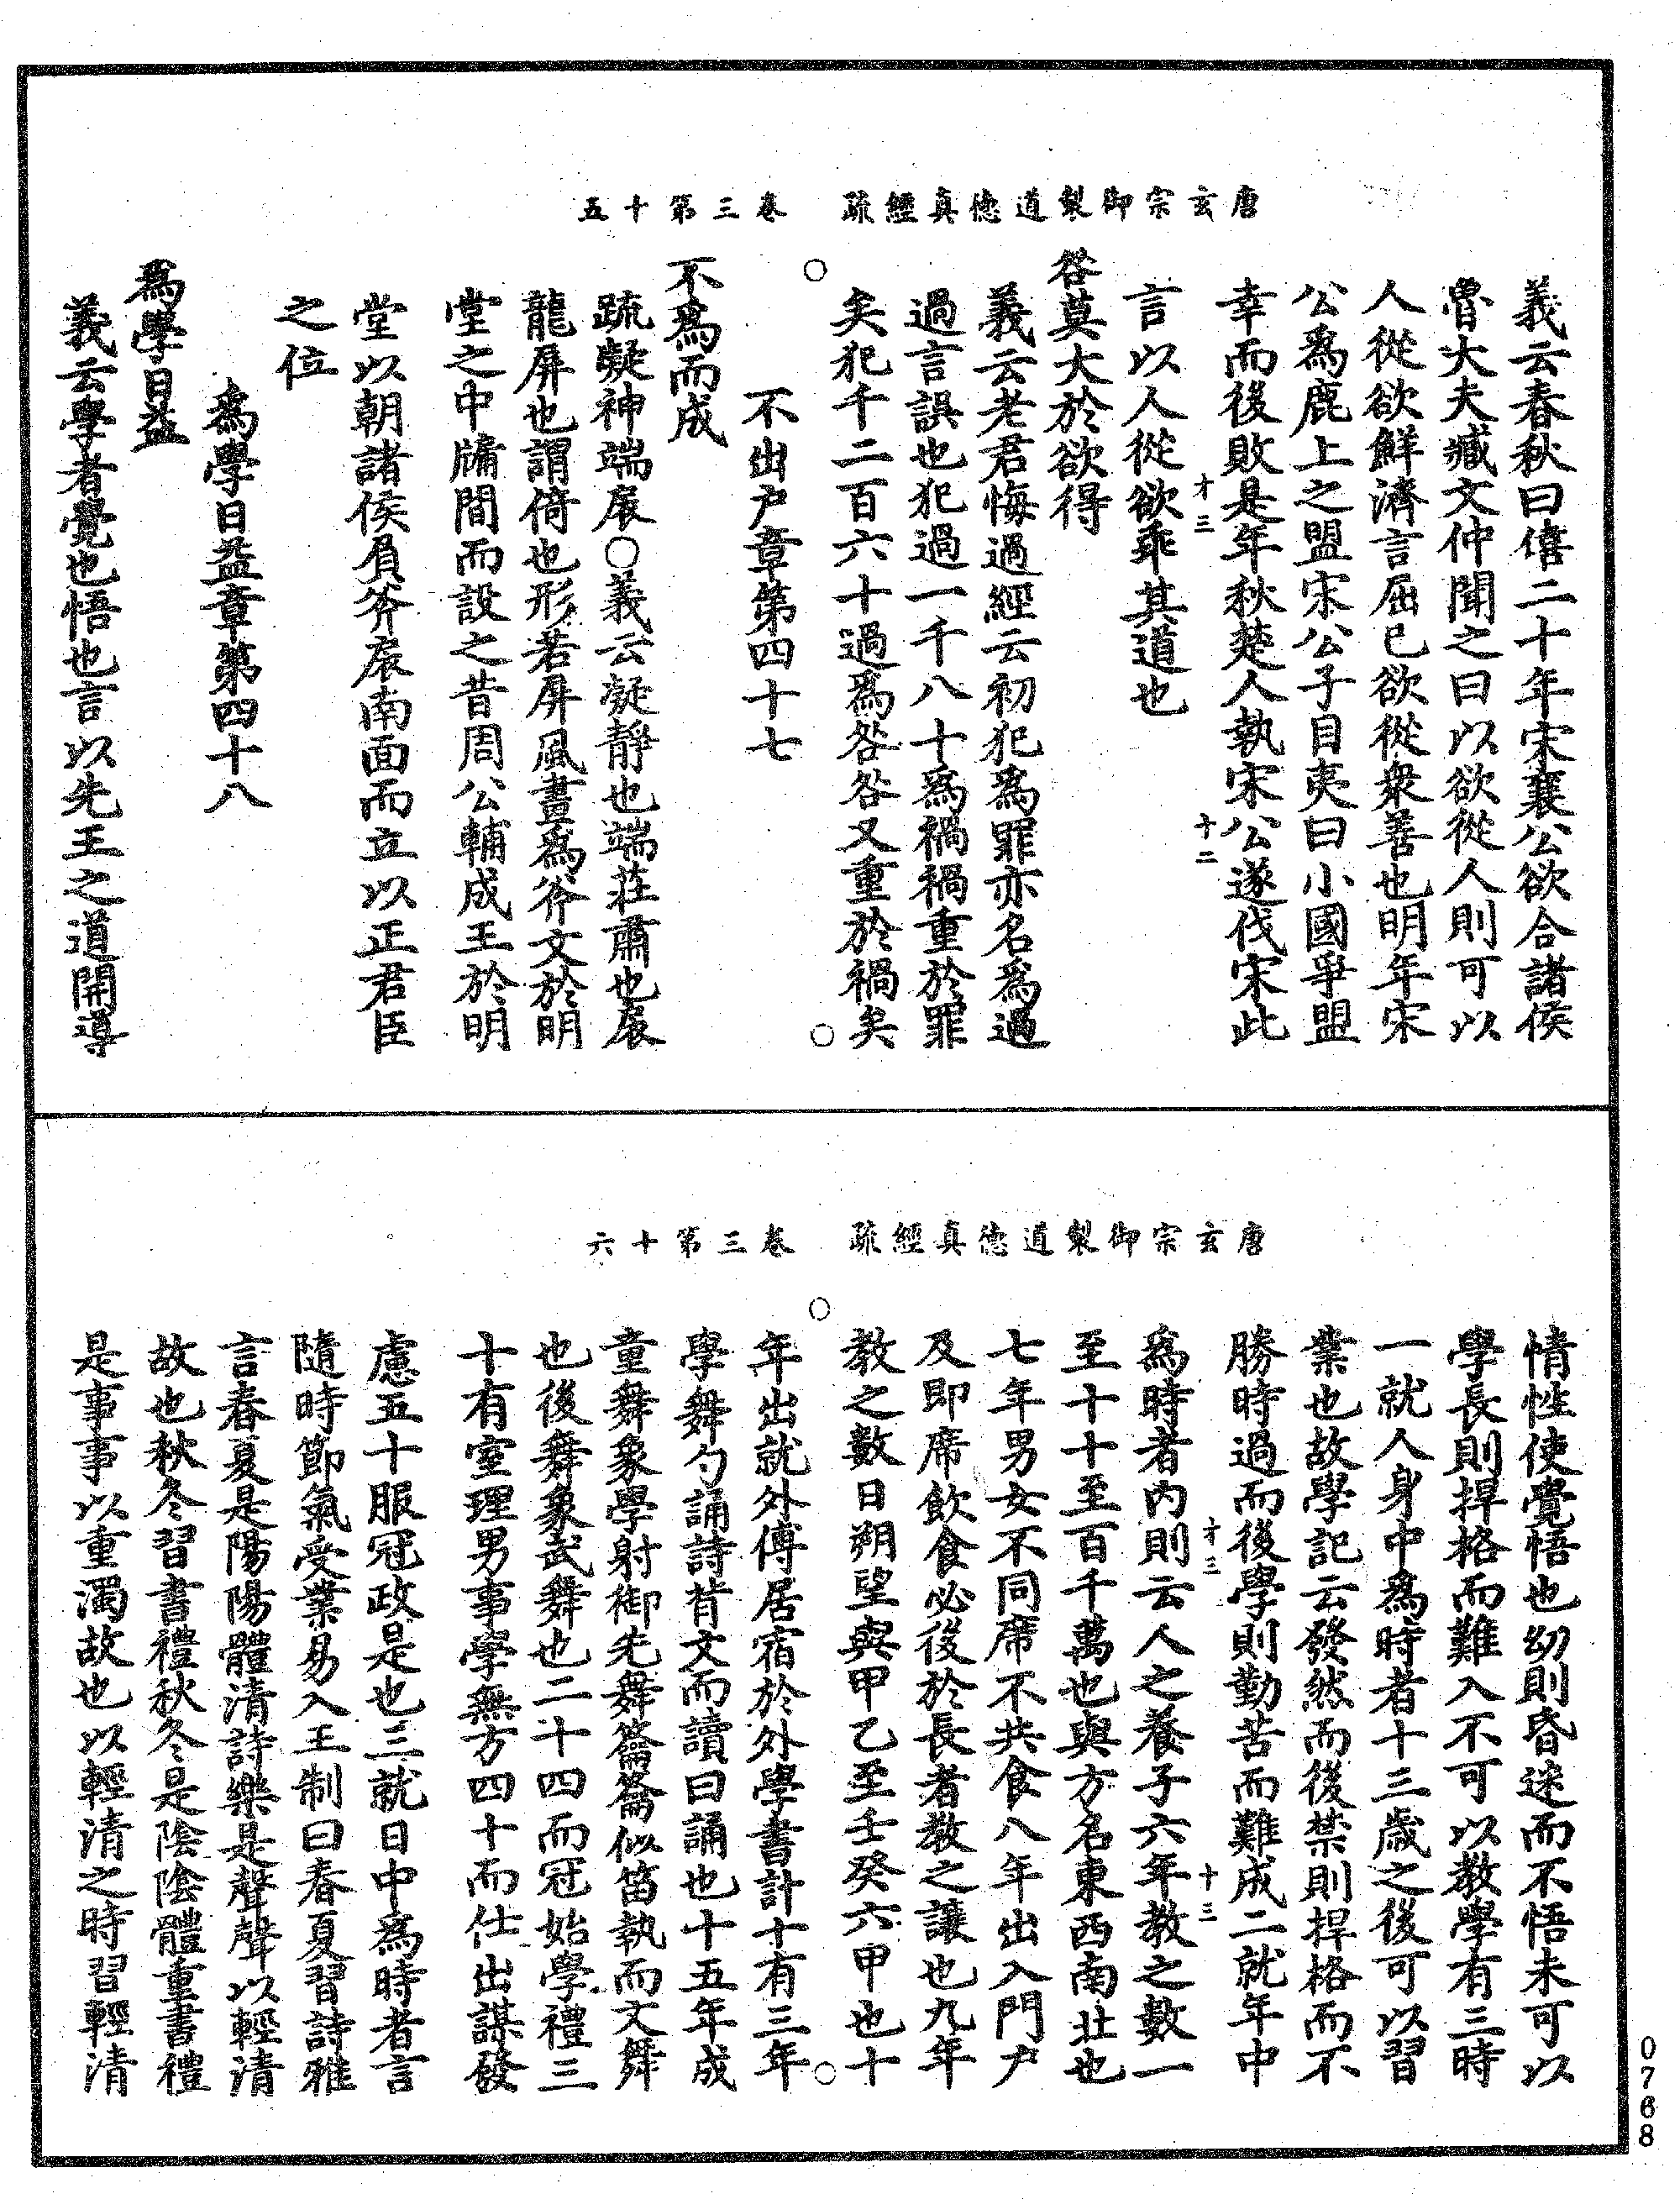 唐玄宗御製道德真經疏　卷三第十五
義云春秋曰僖二十年宋襄公欲合諸侯
魯大夫臧文仲聞之曰以欲從人則可以
人從欲鮮濟言屈己欲從衆善也明年宋
公爲鹿上之盟宋公子目夷曰小國爭盟
幸而後敗是年秋楚人執宋公遂伐宋此
才三　十二
言以人從欲乖其道也
咎莫大於欲得
義云老君悔過經云初犯爲罪亦名爲過
過言誤也犯過一千八十爲禍禍重於罪
矣犯千二百六十過爲咎咎又重於禍矣
不出户章第四十七
不爲而成
疏凝神端扆○義云凝靜也端莊肅也扆
龍屏也謂倚也形若屏風畫爲斧文於明
堂之中牖間而設之昔周公輔成王於明
堂以朝諸侯負斧扆南面而立以正君臣
之位
爲學日益章第四十八
爲學日益
義云學者覺也悟也言以先王之道開導
唐玄宗御製道德真經疏　卷三第十六
情性使覺悟也幼則昏迷而不悟未可以
學長則捍格而難入不可以教學有三時
一就人身中爲時者十三歲之後可以習
業也故學記云發然而後禁則捍格而不
勝時過而後學則勤苦而難成二就年中
才三　十三
爲時者内則云人之養子六年教之數一
至十十至百千萬也與方名東西南北也
七年男女不同席不共食八年出入門户
及即席飲食必後於長者教之讓也九年
教之數日朔望與甲乙至壬癸六甲也十
年出就外傅居宿於外學書計十有三年
學舞勺誦詩背文而讀曰誦也十五年成
童舞象學射御先舞籥籥似笛執而文舞
也後舞象武舞也二十四而冠始學禮三
十有室理男事學無方四十而仕出謀發
慮五十服冠政是也三就日中為時者言
隨時節氣受業易入王制曰春夏習詩雅
言春夏是陽陽體清詩樂是聲聲以輕清
故也秋冬習書禮秋冬是陰陰體重書禮
是事事以重濁故也以輕清之時習輕清
0768